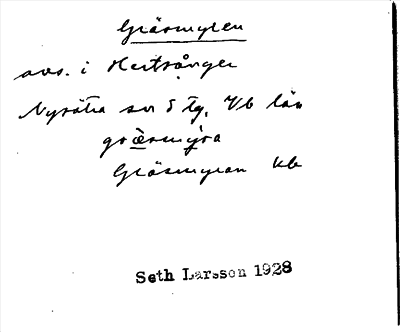 Gräsmyren
avs. i Hertsånger
Nysätra sn S tg, Vb län
græ̀smýra
Gräsmyran kb
Seth Larsson 1928